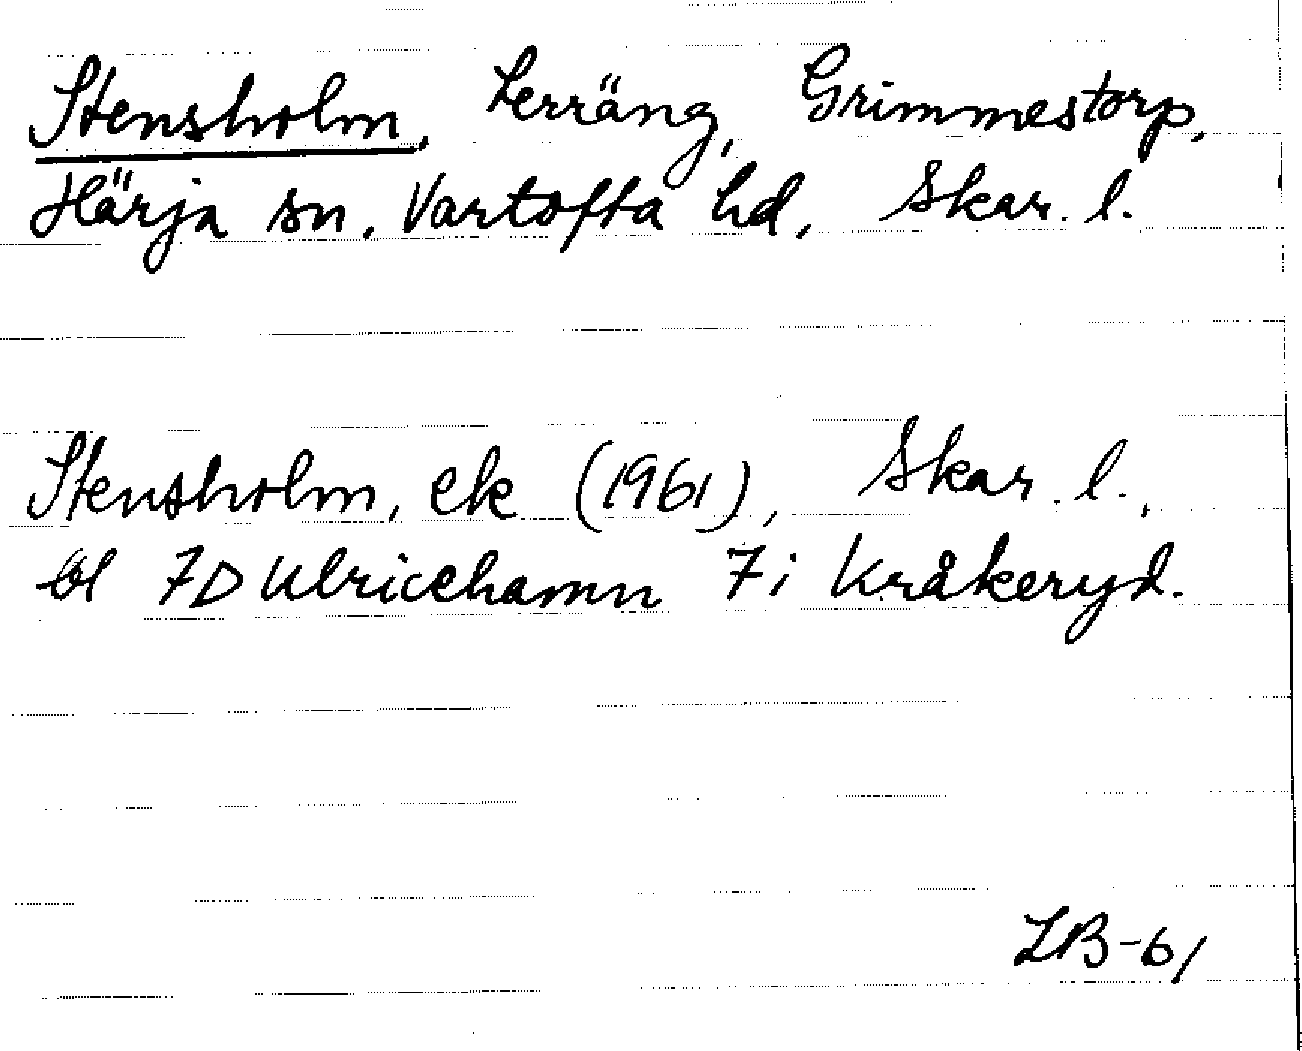 Stensholm, Lerräng, Grimmestorp,
Härja sn, Vartofta hd, Skar. l.
Stensholm, ek (1961), Skar. l.,
bl 7D Ulricehamn 7i Kråkeryd.
LB-61